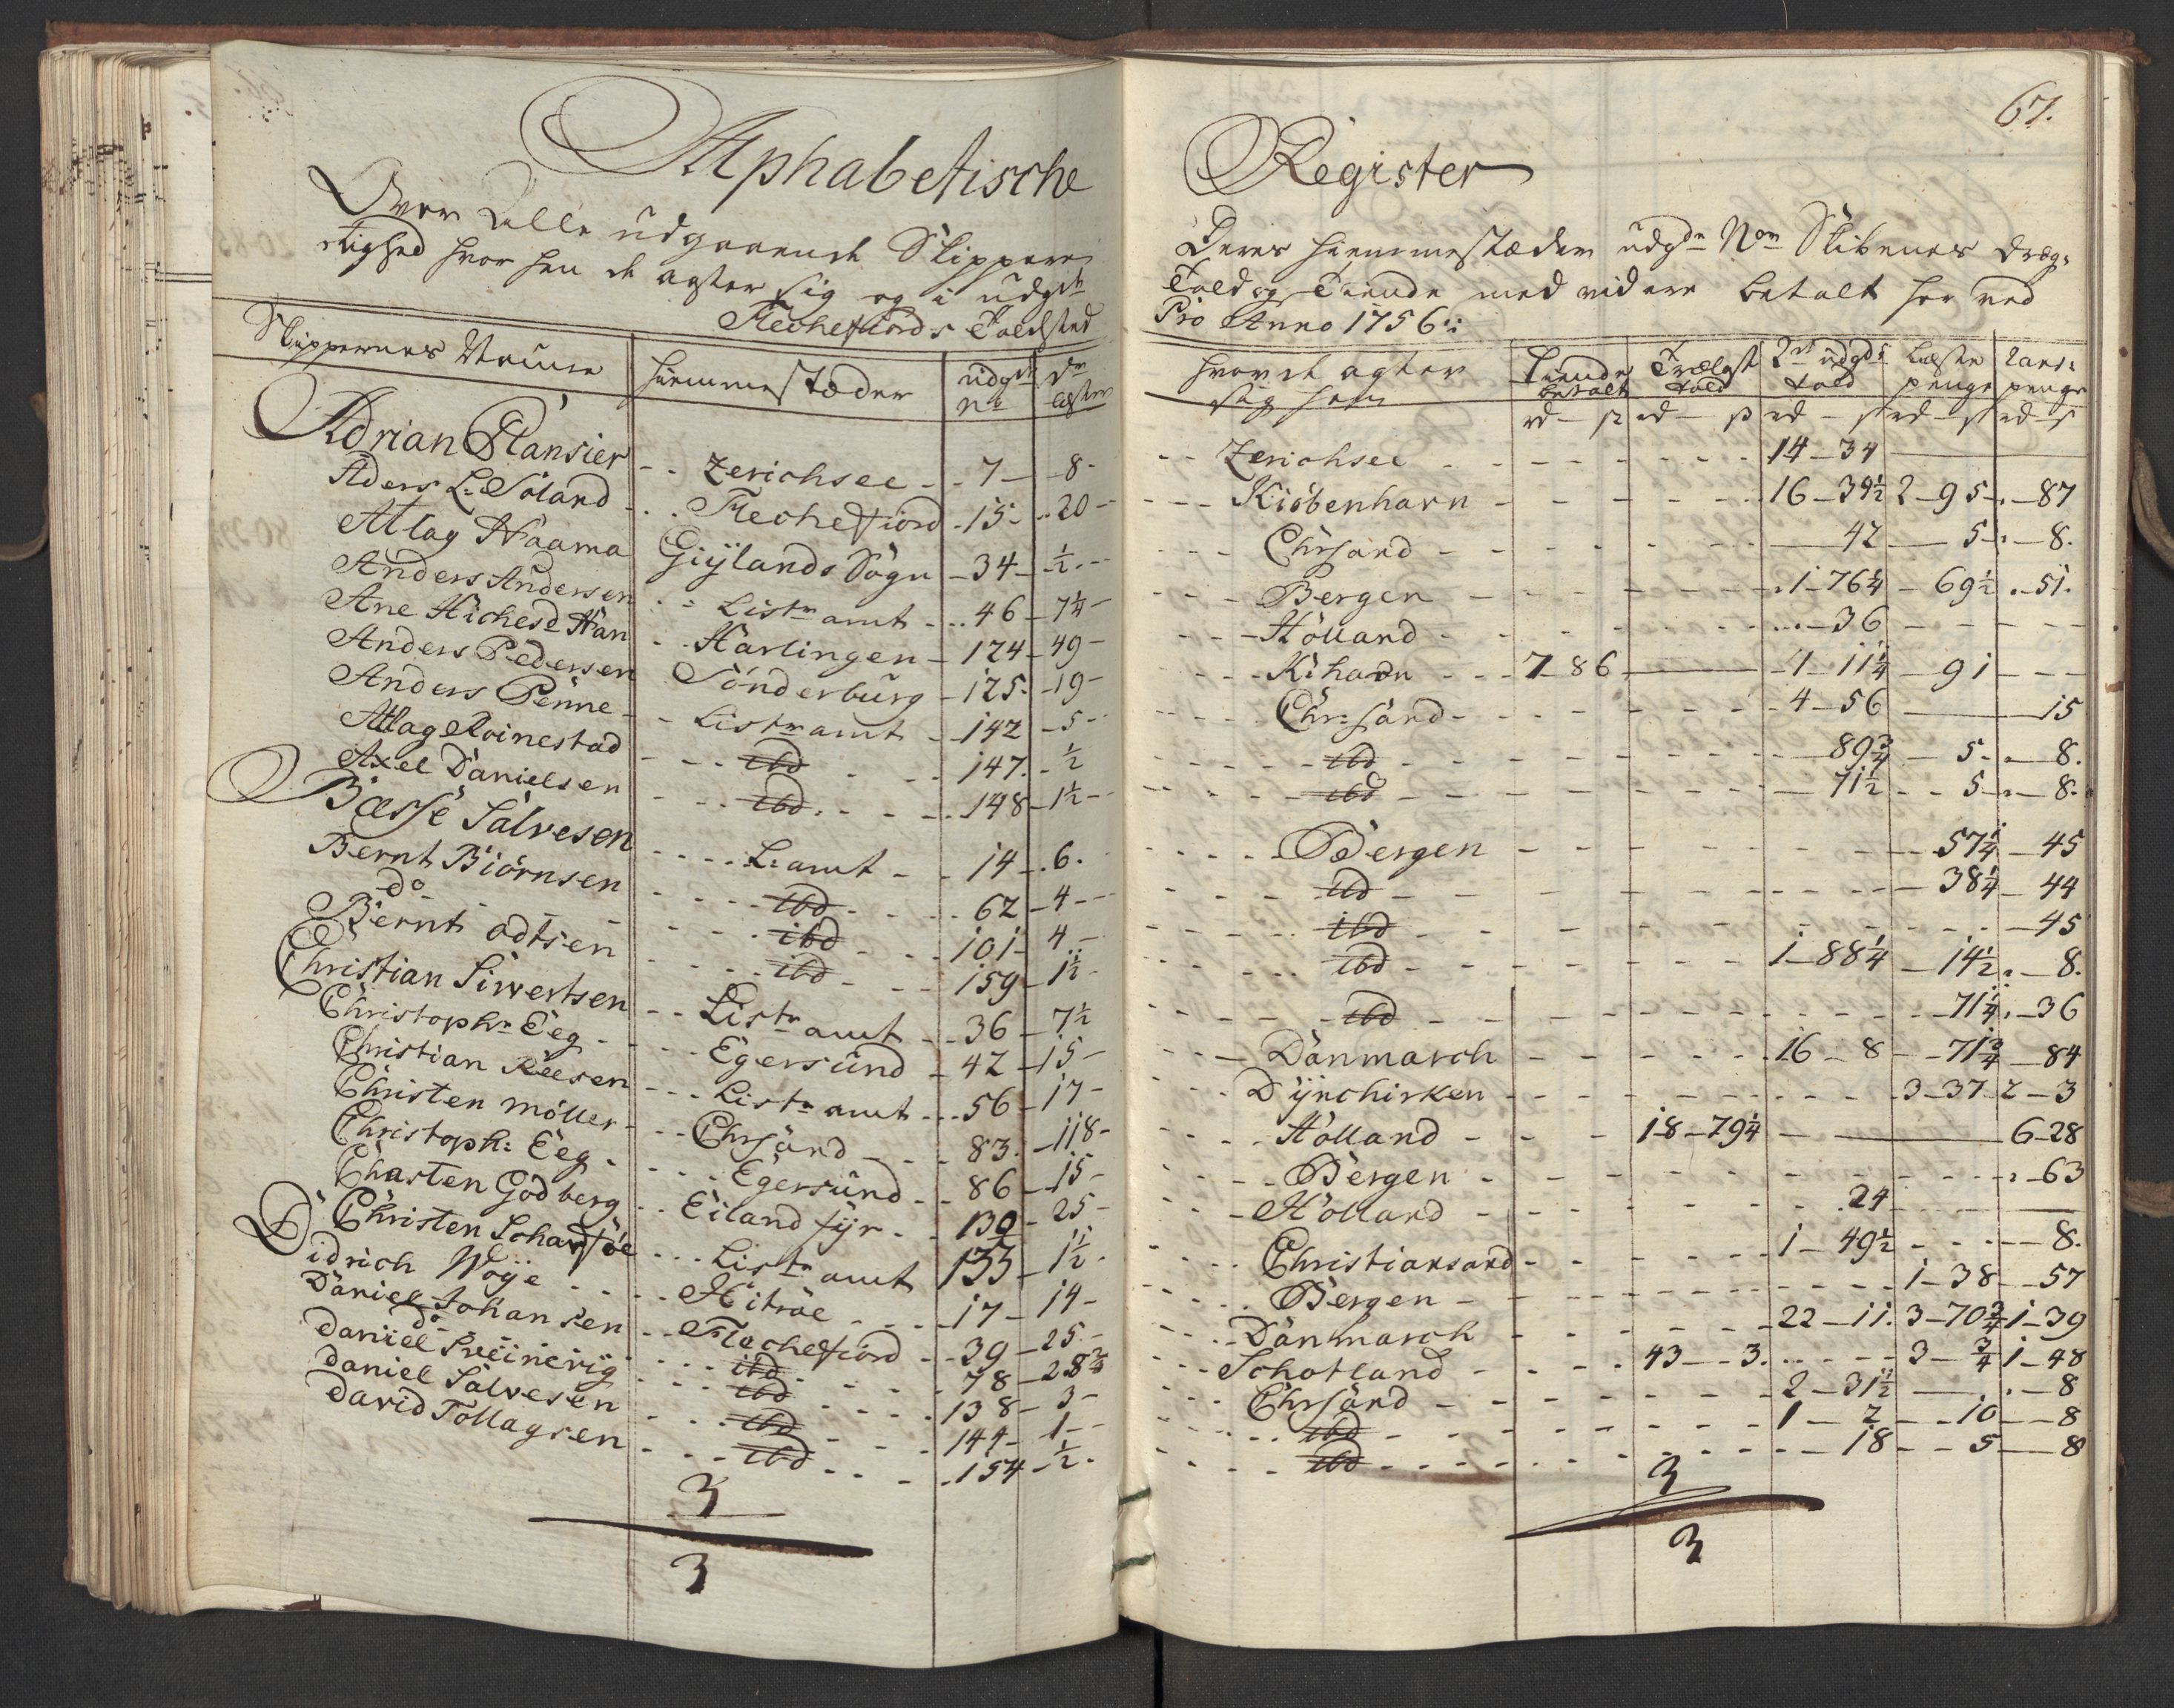 Alphabetische
Over alle udgaaende Skippere
rtighed hvor hen de agter sig og i udgdr
Flechefiords Toldsted
Skippernes Naune
Hiemmestæder
udgdr No
Dr læster
Adrian Clansier - - Zerichsee - - 7 - - 8 -
Aders L: Söland - . . Flechefiord - 15 - . . 20 -
Atlag Haama Gÿlands Sogn - 34 - ½ . - -
Anders Andersen - - Listr amt - . . 46 - 7¼ -
Ane Hichesd Han - - Harlingen - 124 - 49 -
Anders Pedersen Sönderburg - 125 . - 19 -
Anders Penne - - Listr amt - 142 - 5 - -
Atlag Roinestad - - - ibd - - - 147 . - ½
Axel Danielsen - - - ibd . - - - 148 - 1½ - -
Basse Salvesen - - - - L: amt - - 14 - . 6 .
Bernt Biörnsen - - - - ibd - - - 62 - 4 - -
do - - - - ibd - - 101 - 4 . -
Bernt odtsen - - - - ibd - - - 159 - 1½ -
Christian Sivertsen - - Listr amt - - 36 - 7½
Christophr Eeg - - - - Egersund - 42 - 15 -
Christian Reesen - - - Listr amt - . . 56 - 17 -
Christen möller - - - Chrsand - - - 83 . - 118 -
Christoph: Eeg - - - - Egersund - - 86 - 15 -
Chasten Godberg - - Eiland fÿr - - 130 - 25 -
Christen Johansöe - - - Listr amt 133 - 1½ .
Didrich Woÿe - - - - Hitröe - - - 17 - 14 -
Daniel Johansen - - Flechefiord - - 39 - 25 -
do - - - ibd - - - - 78 - 28¾
Daniel Sveinevig - - - ibd - - - - 138 - 3 -
Daniel Salvesen - - - ibd - - - 144 - 1 - -
David Tollagsen - - - ibd - - - - 154 - ½ -
3
3
67.
Register
Deres hiemmestæder udgdr Nor Skibenes Dræg:
Told og Tiende med videre betalt her ved
Pro Anno 1756 ::
hvor de agter sig hen
Tiende betalt
Trælast told
2de udgds told
Læste penge
Lans: penge
rd - ß rd - ß rd - ß rd - ß rd - ß
- - Zerichsee - - - - 14 - 34
- - - Kiöbenhavn - - - - 16 - 39½ 2 - 95 - . - 87
- - - Chrsand - - - - 42 - 5 - . - 8.
- - - Bergen - - - - . 1 - 76¼ - 69½ . - 51.
- - - Holland - - - - - 36 - - - -
- - - Kihavn - - - 7 - 86 - 1 - 11¼ - 91 - - -
- - - Chr: sand - - - - 4 - 56 - 15
- - - ibd - - - - 89¾ - 5 - . - 8.
- - - ibd - - - - 71½ - - 5 - . - 8.
- - - Bergen - - - - 57¼ - 45
- - - ibd - - - - 38¼ - 44
- - - ibd - - - - 45
- - - ibd - - - - 1 - 88¼ - 14½ . - 8.
- - - ibd - - - - 71¼ . - 36
- - - Danmarch - - - - 16 - 8 - - 71¾ - 84
- - - Dÿnchirken - - - - 3 - 37 - 2 - 3
- - - Holland - - - 18 - 79¼ - 6 - 28
- - - Bergen - - - - . - 63
- - - Holland - - - - . 24
- - - Christiansand - - - - 1 - 49½ - - - - 8.
- - - Bergen - - - - 1 - 38 - - 57
- - - Danmarch - - - - 22 - 11 . 3 - 70¾ 1 - 39
- - - Schotland - - - 43 - - 3 . - - - 3 - ¾ 1 - 48
- - - Chrsand - - - - 2 - 31½ - . - 8
- - - ibd - - - - 1 - 2 - - 10 - - 8
- - - ibd - - - - 18 - - 5 - - 8
3
3